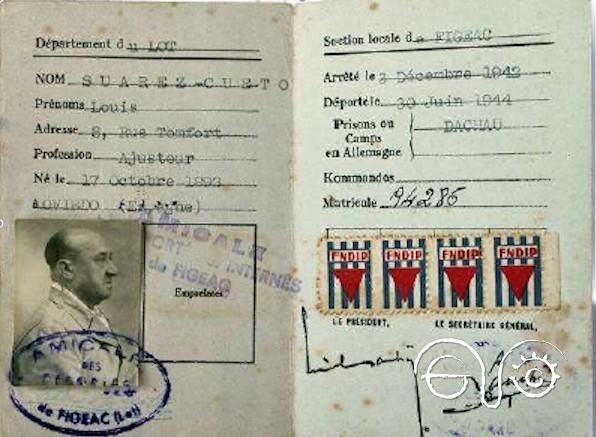 Département du LOT
NOM SUAREZ-CUETO
Prénoms Louis
Adresse 8, Rue Tomfort
Profession Ajusteur
Né le 17 Octobre 1893
à OVIEDO (Espagne)
AMICALE
INTERNES
de FIGEAC
Empreintes
AMICALE
DES
de FIGEAC (Lot)
Section locale de FIGEAC
Arrêté le 3 Décembre 1942
Déporté le 30 Juin 1944
Prisons ou
Camps
en Allemagne
DACHAU
Kommandos
Matricule 94286
FNDIP FNDIP FNDIP FNDIP
LE PRÉSIDENT, LE SECRÉTAIRE GÉNÉRAL,